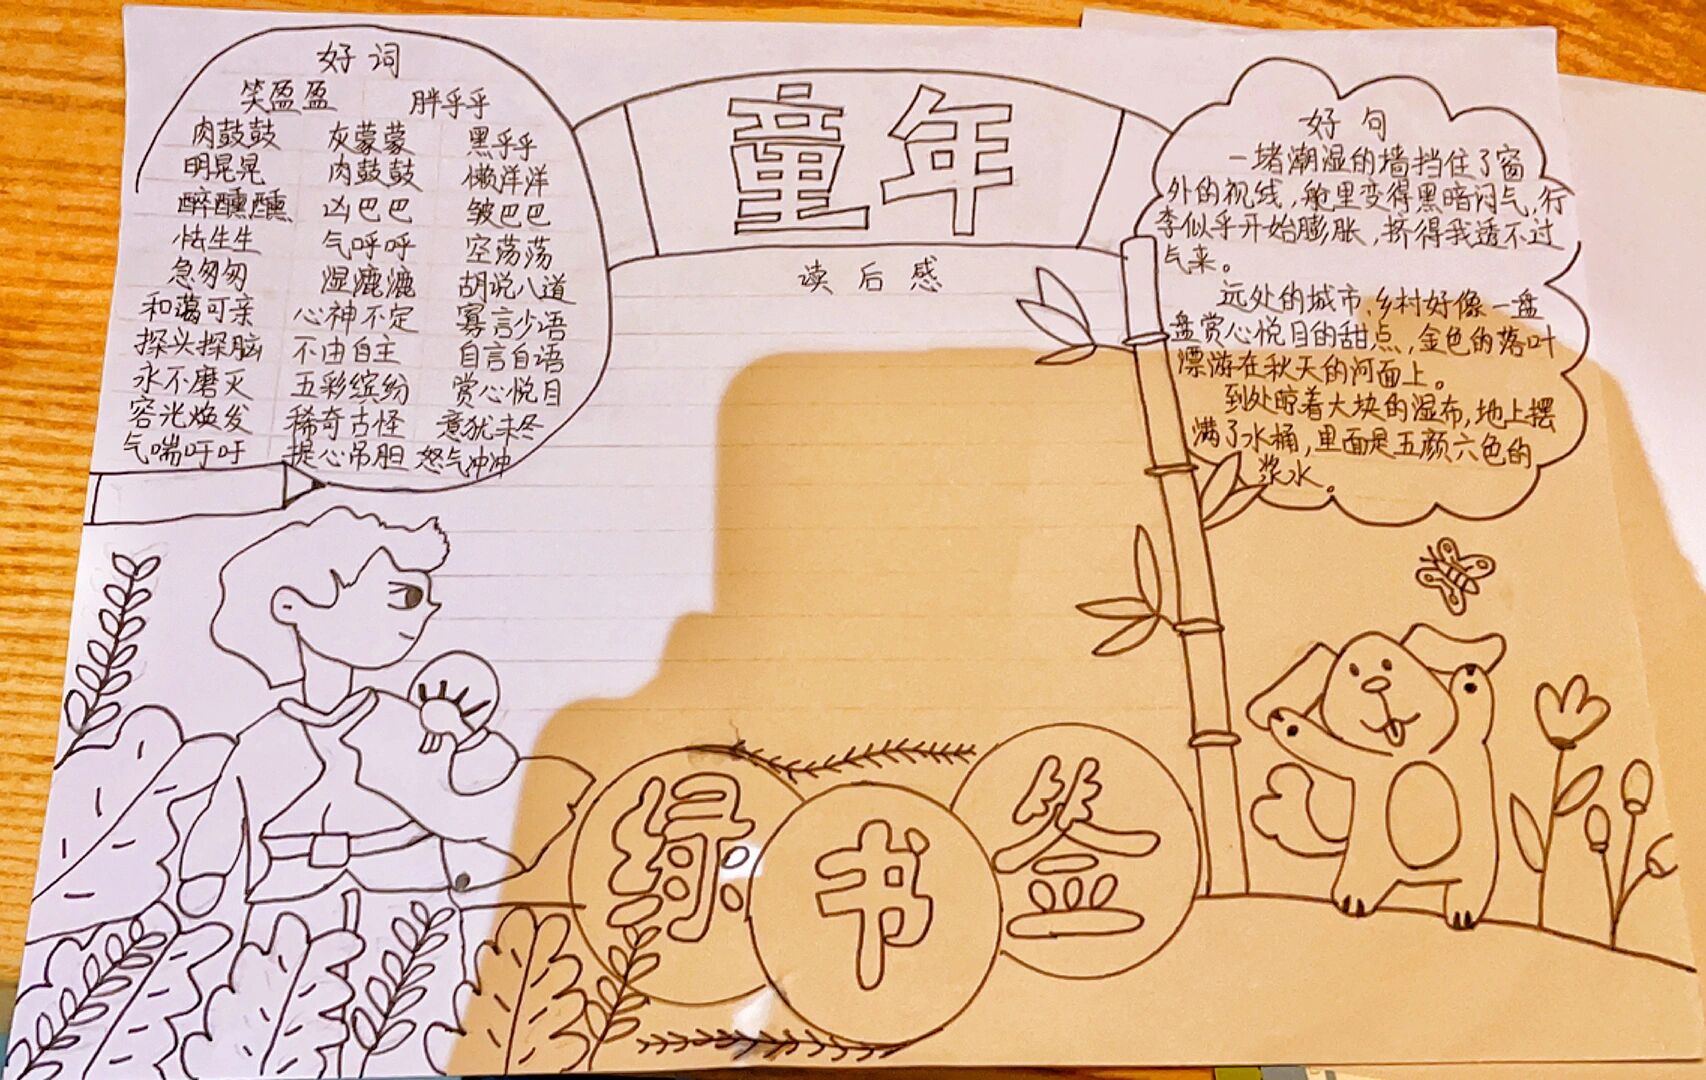 好词
笑盈盈 胖乎乎
肉鼓鼓 灰蒙蒙 黑乎乎
明晃晃 肉鼓鼓 懒洋洋
醉醺醺 凶巴巴 皱巴巴
怯生生 气呼呼 空荡荡
急匆匆 湿漉漉 胡说八道
和蔼可亲 心神不定 寡言少语
探头探脑 不由自主 自言自语
永不磨灭 五彩缤纷 赏心悦目
容光焕发 稀奇古怪 意犹未
气喘吁吁 提心吊胆 怒气冲冲
童年
读后感
好句
一堵潮湿的墙挡住了窗
外的视线，舱里变得黑暗闷气，行
李似乎开始膨胀，挤得我透不过
气来。
远处的城市，乡村好像一盘
盘赏心悦目的甜点，金色的落叶
漂游在秋天的河面上。
到处晾着大块的湿布，地上摆
满了水桶，里面是五颜六色的
浆水。
绿书签